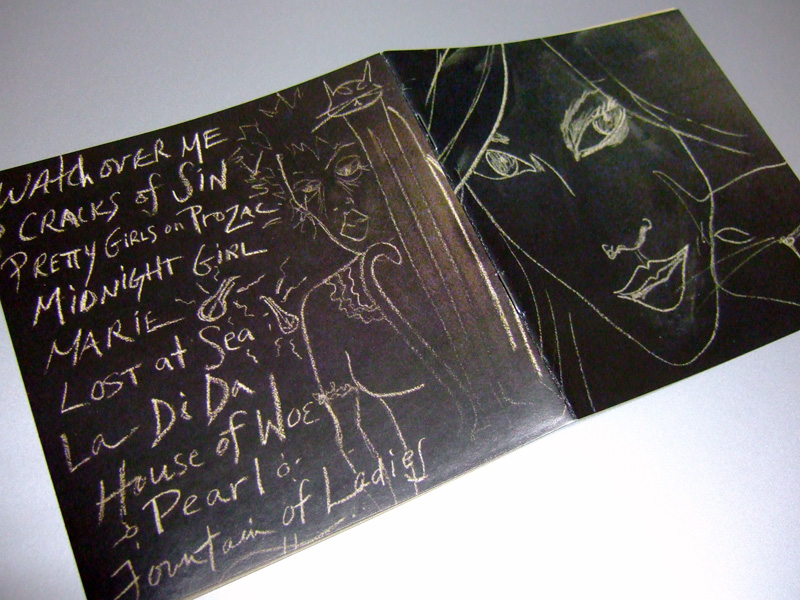 WATCH OVER ME
CRACKS of SiN
PRETTY GiRLS on PROZAC
MiDNiGHT GiRL
MARiE
LOST at Sea
La Di Da
House of WOE
Pearl
Fountain of Ladies